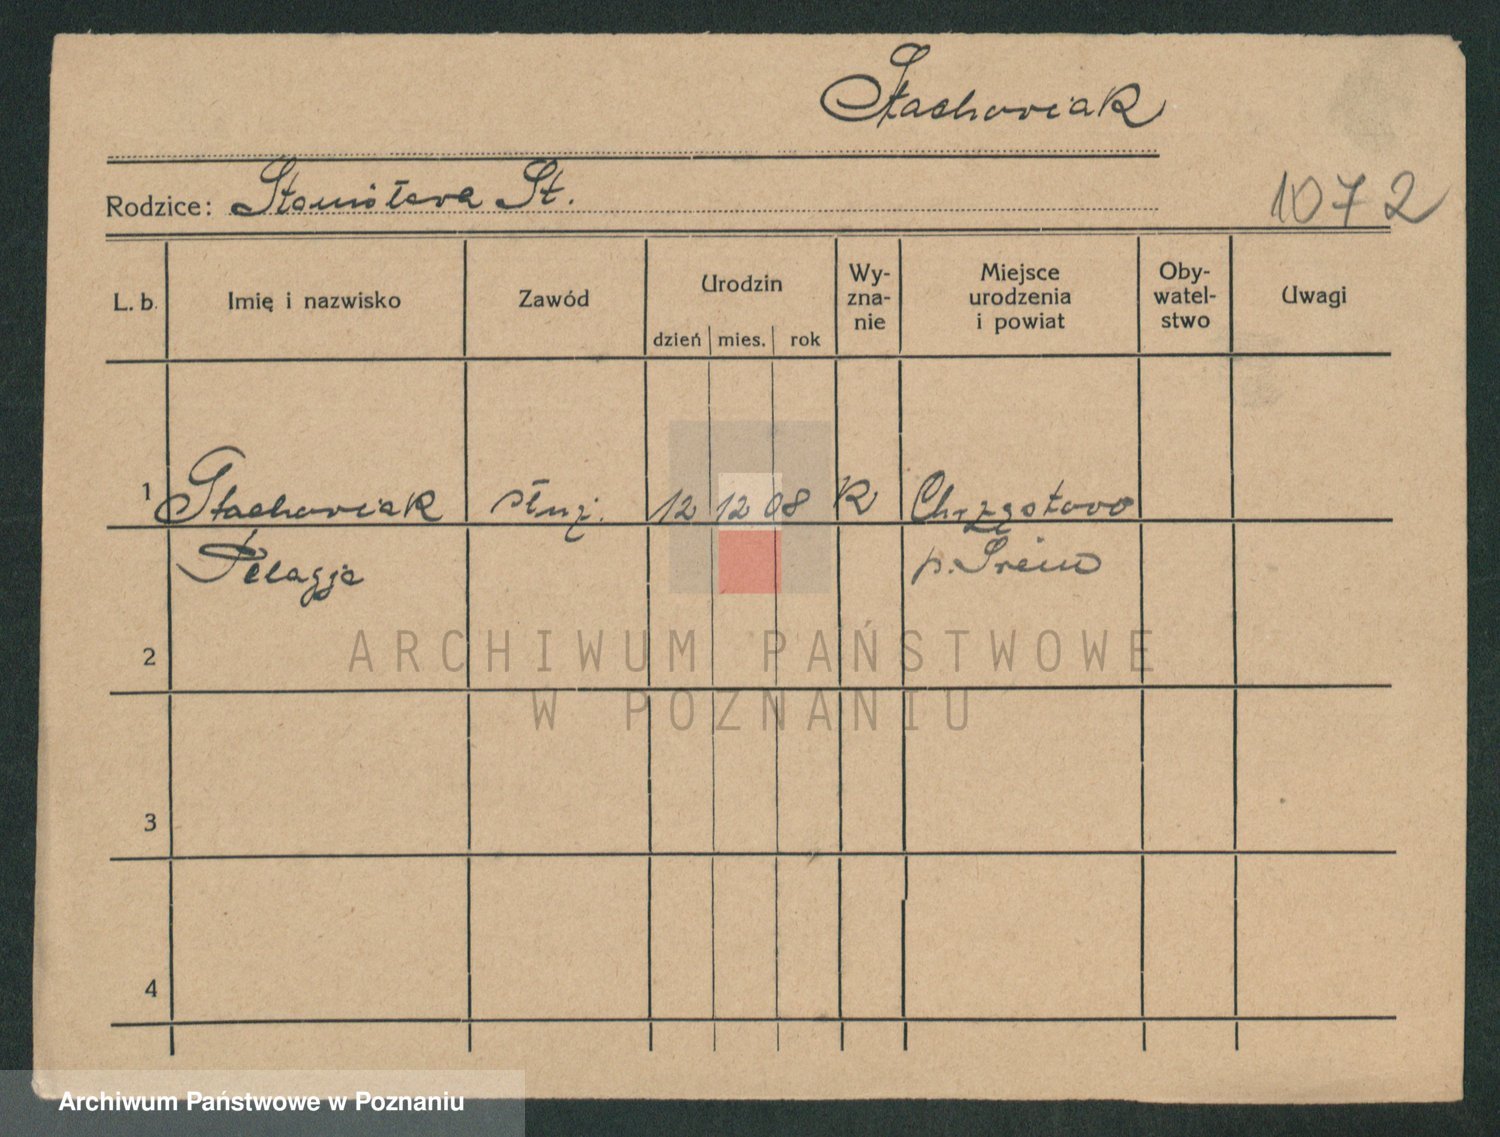 Stachoviak
Rodzice: Stanisława St.
1072
L. b. Imię i nazwisko Zawód Urodzin dzień mies. rok Wy-zna-nie Miejsce urodzenia i powiat Oby-watel-stwo Uwagi
1 Stachoviak służ. 12 12 08 K Chrząstovo
Pelagja p. Śrem
2
3
4
ARCHIWUM PAŃSTWOWE
W POZNANIU
Archiwum Państwowe w Poznaniu